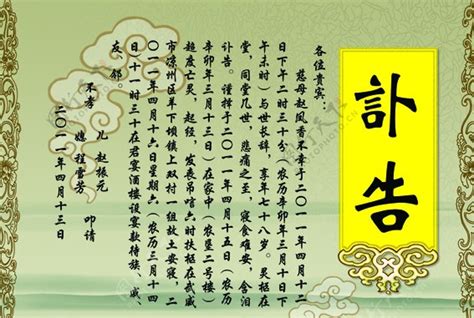 訃告
各位贵宾:
慈母赵凤香不幸于二〇一一年四月十二
日下午二时三十分(农历辛卯年三月十日下
午未时)与世长辞,享年七十八岁。灵柩在
堂,同堂几世,悲痛之至,寝食难安,含泪
讣告。谨择于二〇一一年四月十五日(农历
辛卯年三月十三日)在家中(农垦二号楼)
超度亡灵,赵经,发丧吊唁六时扶柩在武威
市凉州区羊下坝镇上双村一组故土安寝,二
〇一一年四月十六日星期六(农历三月十四
日)十一时三十在君宴酒楼设宴款待族、戚、
友、邻。
不孝 儿 赵振元
媳 程雪芳 叩请
二〇一一年四月十三日